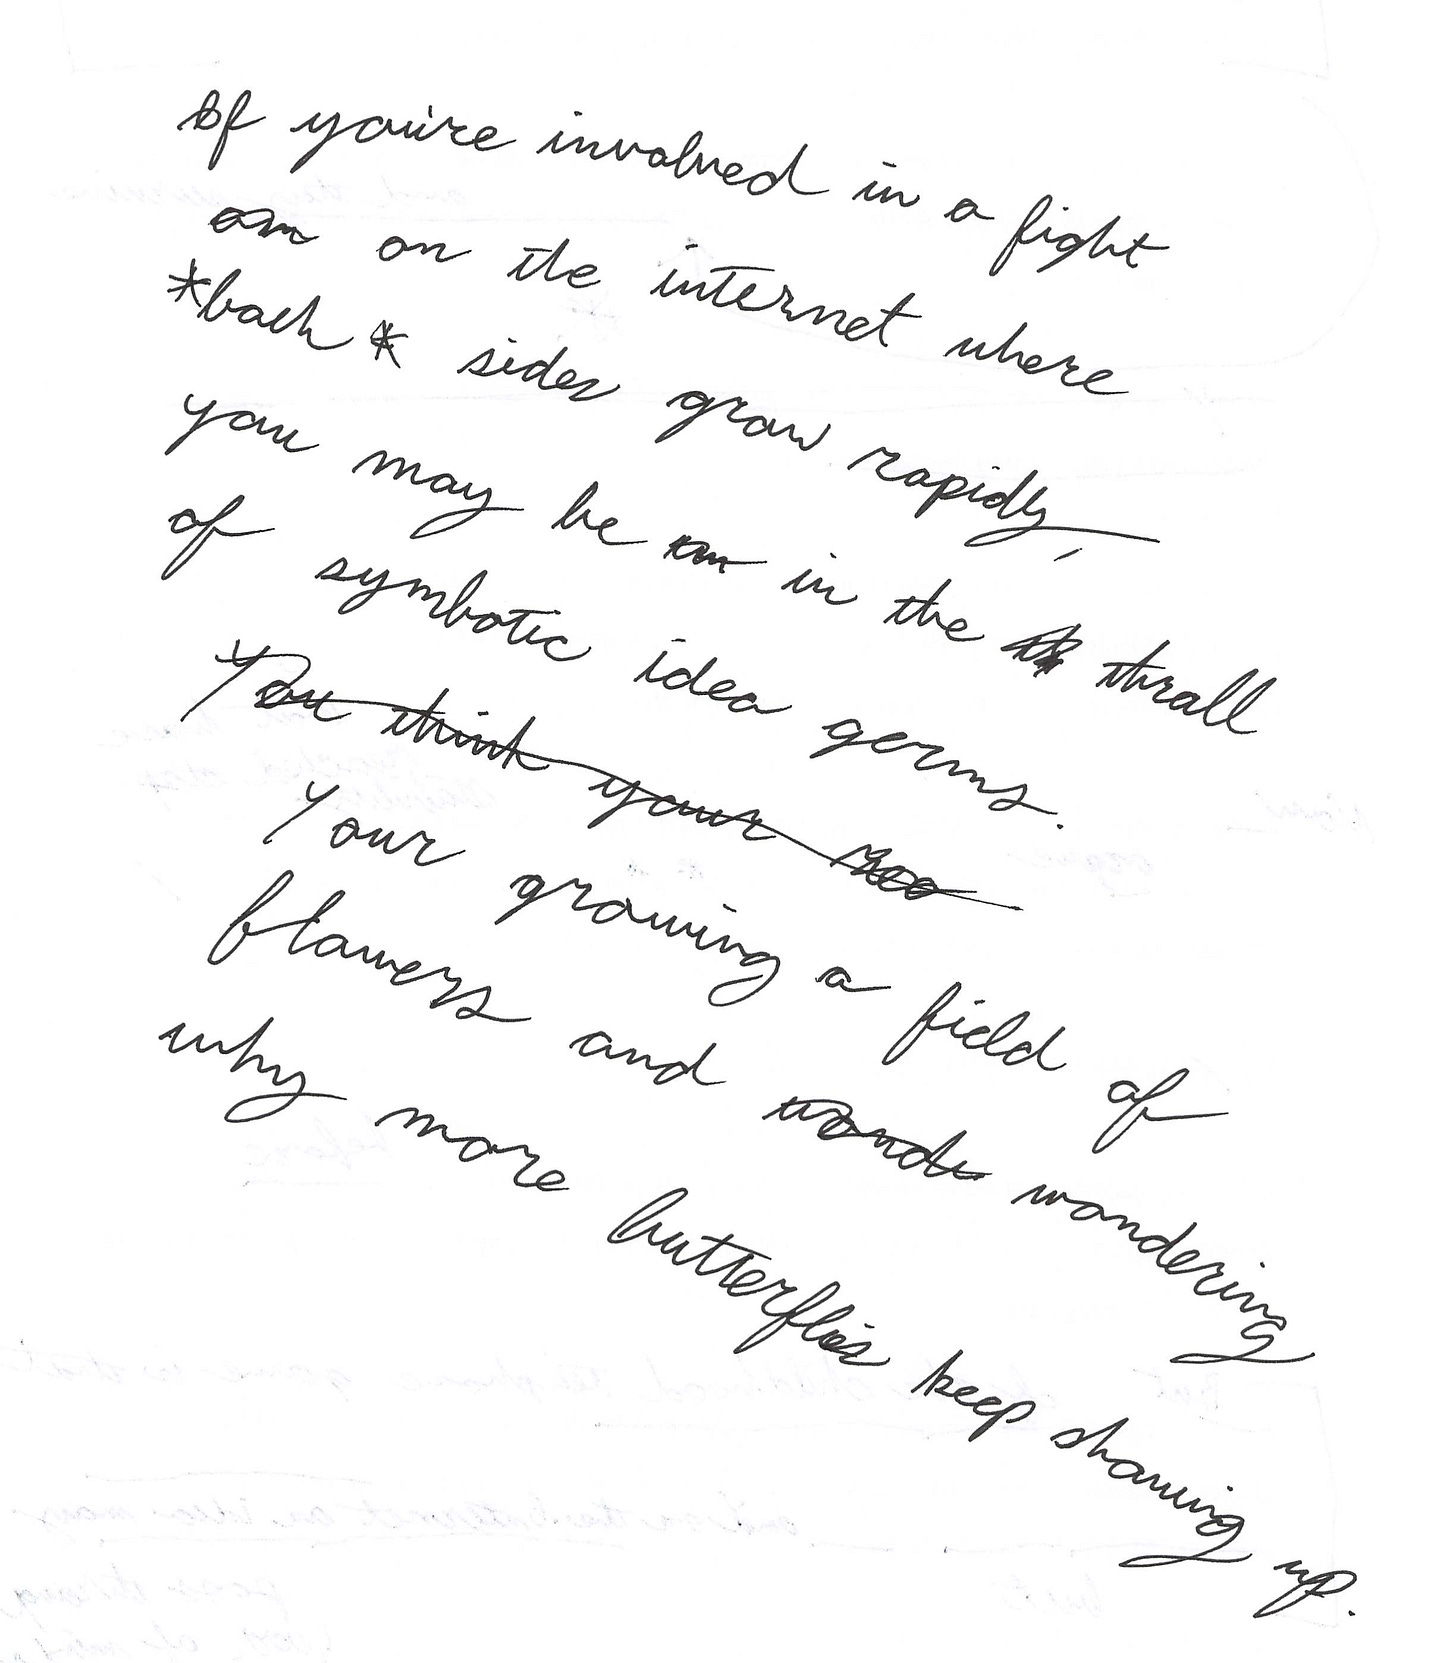 If you're involved in a fight
on on the internet where
*both* sides grow rapidly,
you may be in the thrall
of symbotic idea germs.
You think your
Your growing a field of
flowers and wonde wondering
why more butterflies keep showing up.